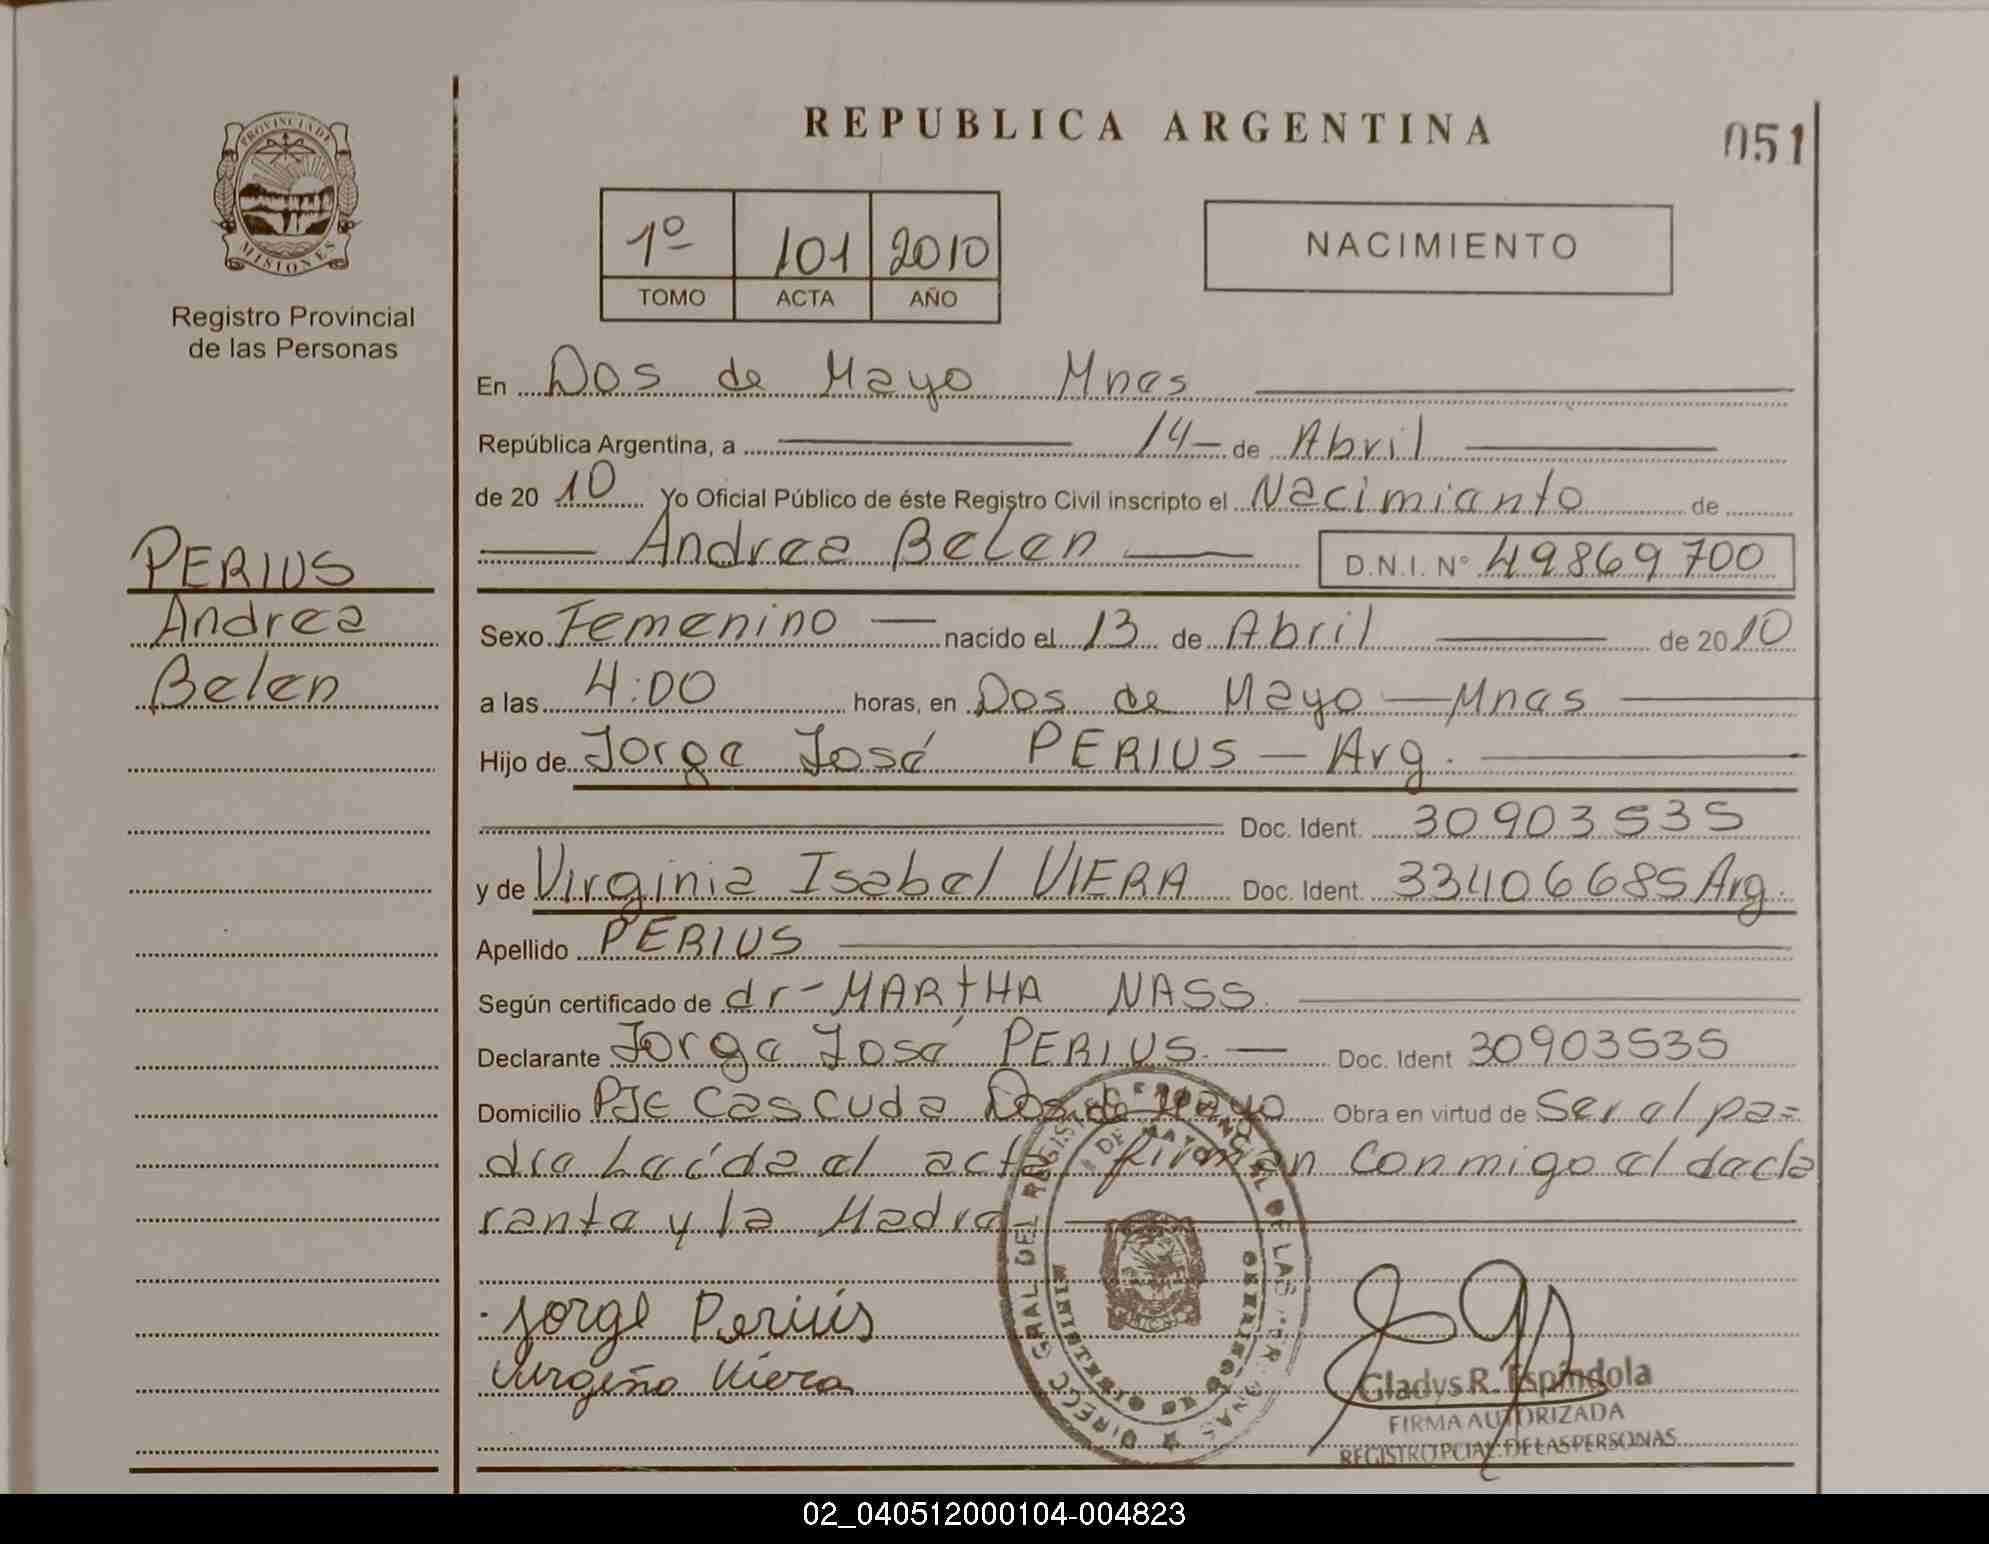 PROVINCIA DE
MISIONES
Registro Provincial
de las Personas
PERIUS
Andrea
Belen
REPUBLICA ARGENTINA
051
1º 101 2010
TOMO ACTA AÑO
NACIMIENTO
En Dos de Mayo Mnes
República Argentina, a 14 de Abril
de 2010 Yo Oficial Público de éste Registro Civil inscripto el Nacimiento de
Andrea Belen D.N.I. Nº 49869700
Sexo Femenino nacido el 13 de Abril de 2010
a las 4:00 horas, en Dos de Mayo - Mnes
Hijo de Jorge José PERIUS - Arg.
Doc. Ident. 30903535
y de Virginia Isabel VIERA Doc. Ident. 33406685 Arg.
Apellido PERIUS
Según certificado de dr- MARTHA NASS.
Declarante Jorge José PERIUS. - Doc. Ident 30903535
Domicilio Pje Cascuda Dos de Mayo Obra en virtud de Ser el pa=
dre Leída el acta firman conmigo el decla
rante y la Madre
Jorge Periús
Viera
DIRECC GRAL DEL REGISTRO PROVINCIAL DE LAS PERSONAS
2 DE MAYO
MINISTERIO DE GOBIERNO
Gladys R. Espindola
FIRMA AUTORIZADA
REGISTRO PCIAL. DE LAS PERSONAS
02_040512000104-004823